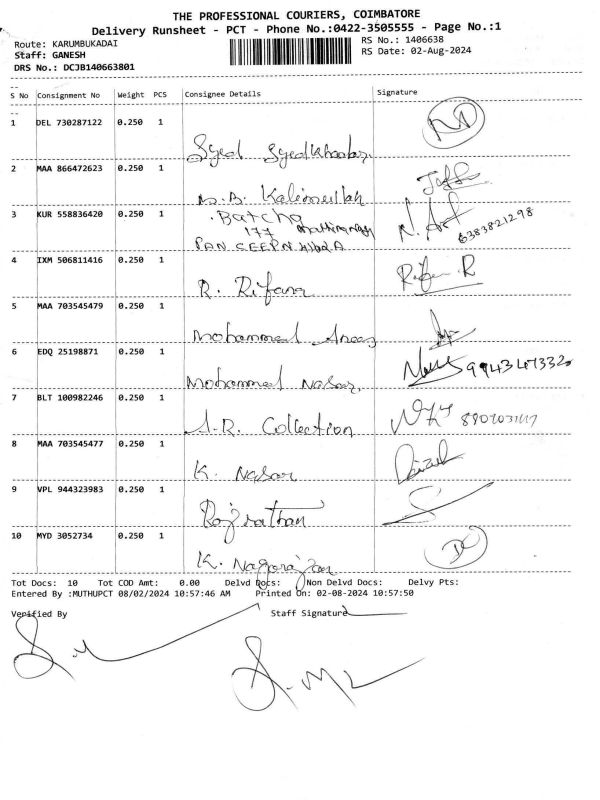 THE PROFESSIONAL COURIERS, COIMBATORE
Delivery Runsheet - PCT - Phone No.:0422-3505555 - Page No.:1
Route: KARUMBUKADAI
RS No.: 1406638
Staff: GANESH
RS Date: 02-Aug-2024
DRS No.: DCJB140663801
S No Consignment No Weight PCS Consignee Details Signature
1 DEL 730287122 0.250 1
Syed Syedkhadar
2 MAA 866472623 0.250 1
M.B. Kalimullah
3 KUR 558836420 0.250 1 Batcha
177
6383821298
4 IXM 506811416 0.250 1
R. Rifana
5 MAA 703545479 0.250 1
Mohammed Anas
6 EDQ 25198871 0.250 1
Mohammed Nasar
7 BLT 100982246 0.250 1
A.R. Collection
8 MAA 703545477 0.250 1
K. Nasar
9 VPL 944323983 0.250 1
Rajrathan
10 MYD 3052734 0.250 1
K. Nagarajan
Tot Docs: 10 Tot COD Amt: 0.00 Delvd Docs: Non Delvd Docs: Delvy Pts:
Entered By :MUTHUPCT 08/02/2024 10:57:46 AM Printed On: 02-08-2024 10:57:50
Verified By Staff Signature